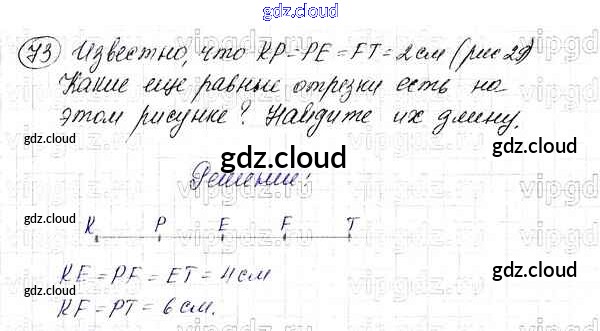 gdz.cloud
73 Известно, что KP=PE=FT=2см (рис 29)
Какие еще равные отрезки есть на
этом рисунке? Найдите их длину.
gdz.cloud
Решение:
K P E F T
KE = PF = ET = 4 см
KF = PT = 6 см.
gdz.cloud
gdz.cloud
gdz.cloud
gdz.cloud
gdz.cloud